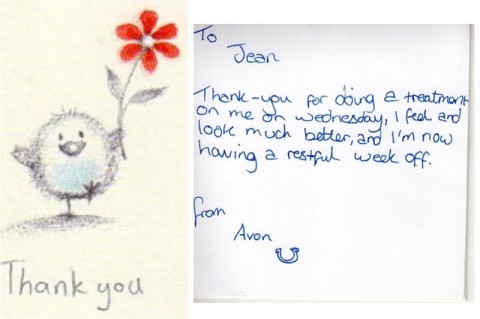 Thank you
To
Jean
Thank-you for doing a treatment
on me on wednesday, I feel and
look much better, and I'm now
having a restful week off.
from
Avon